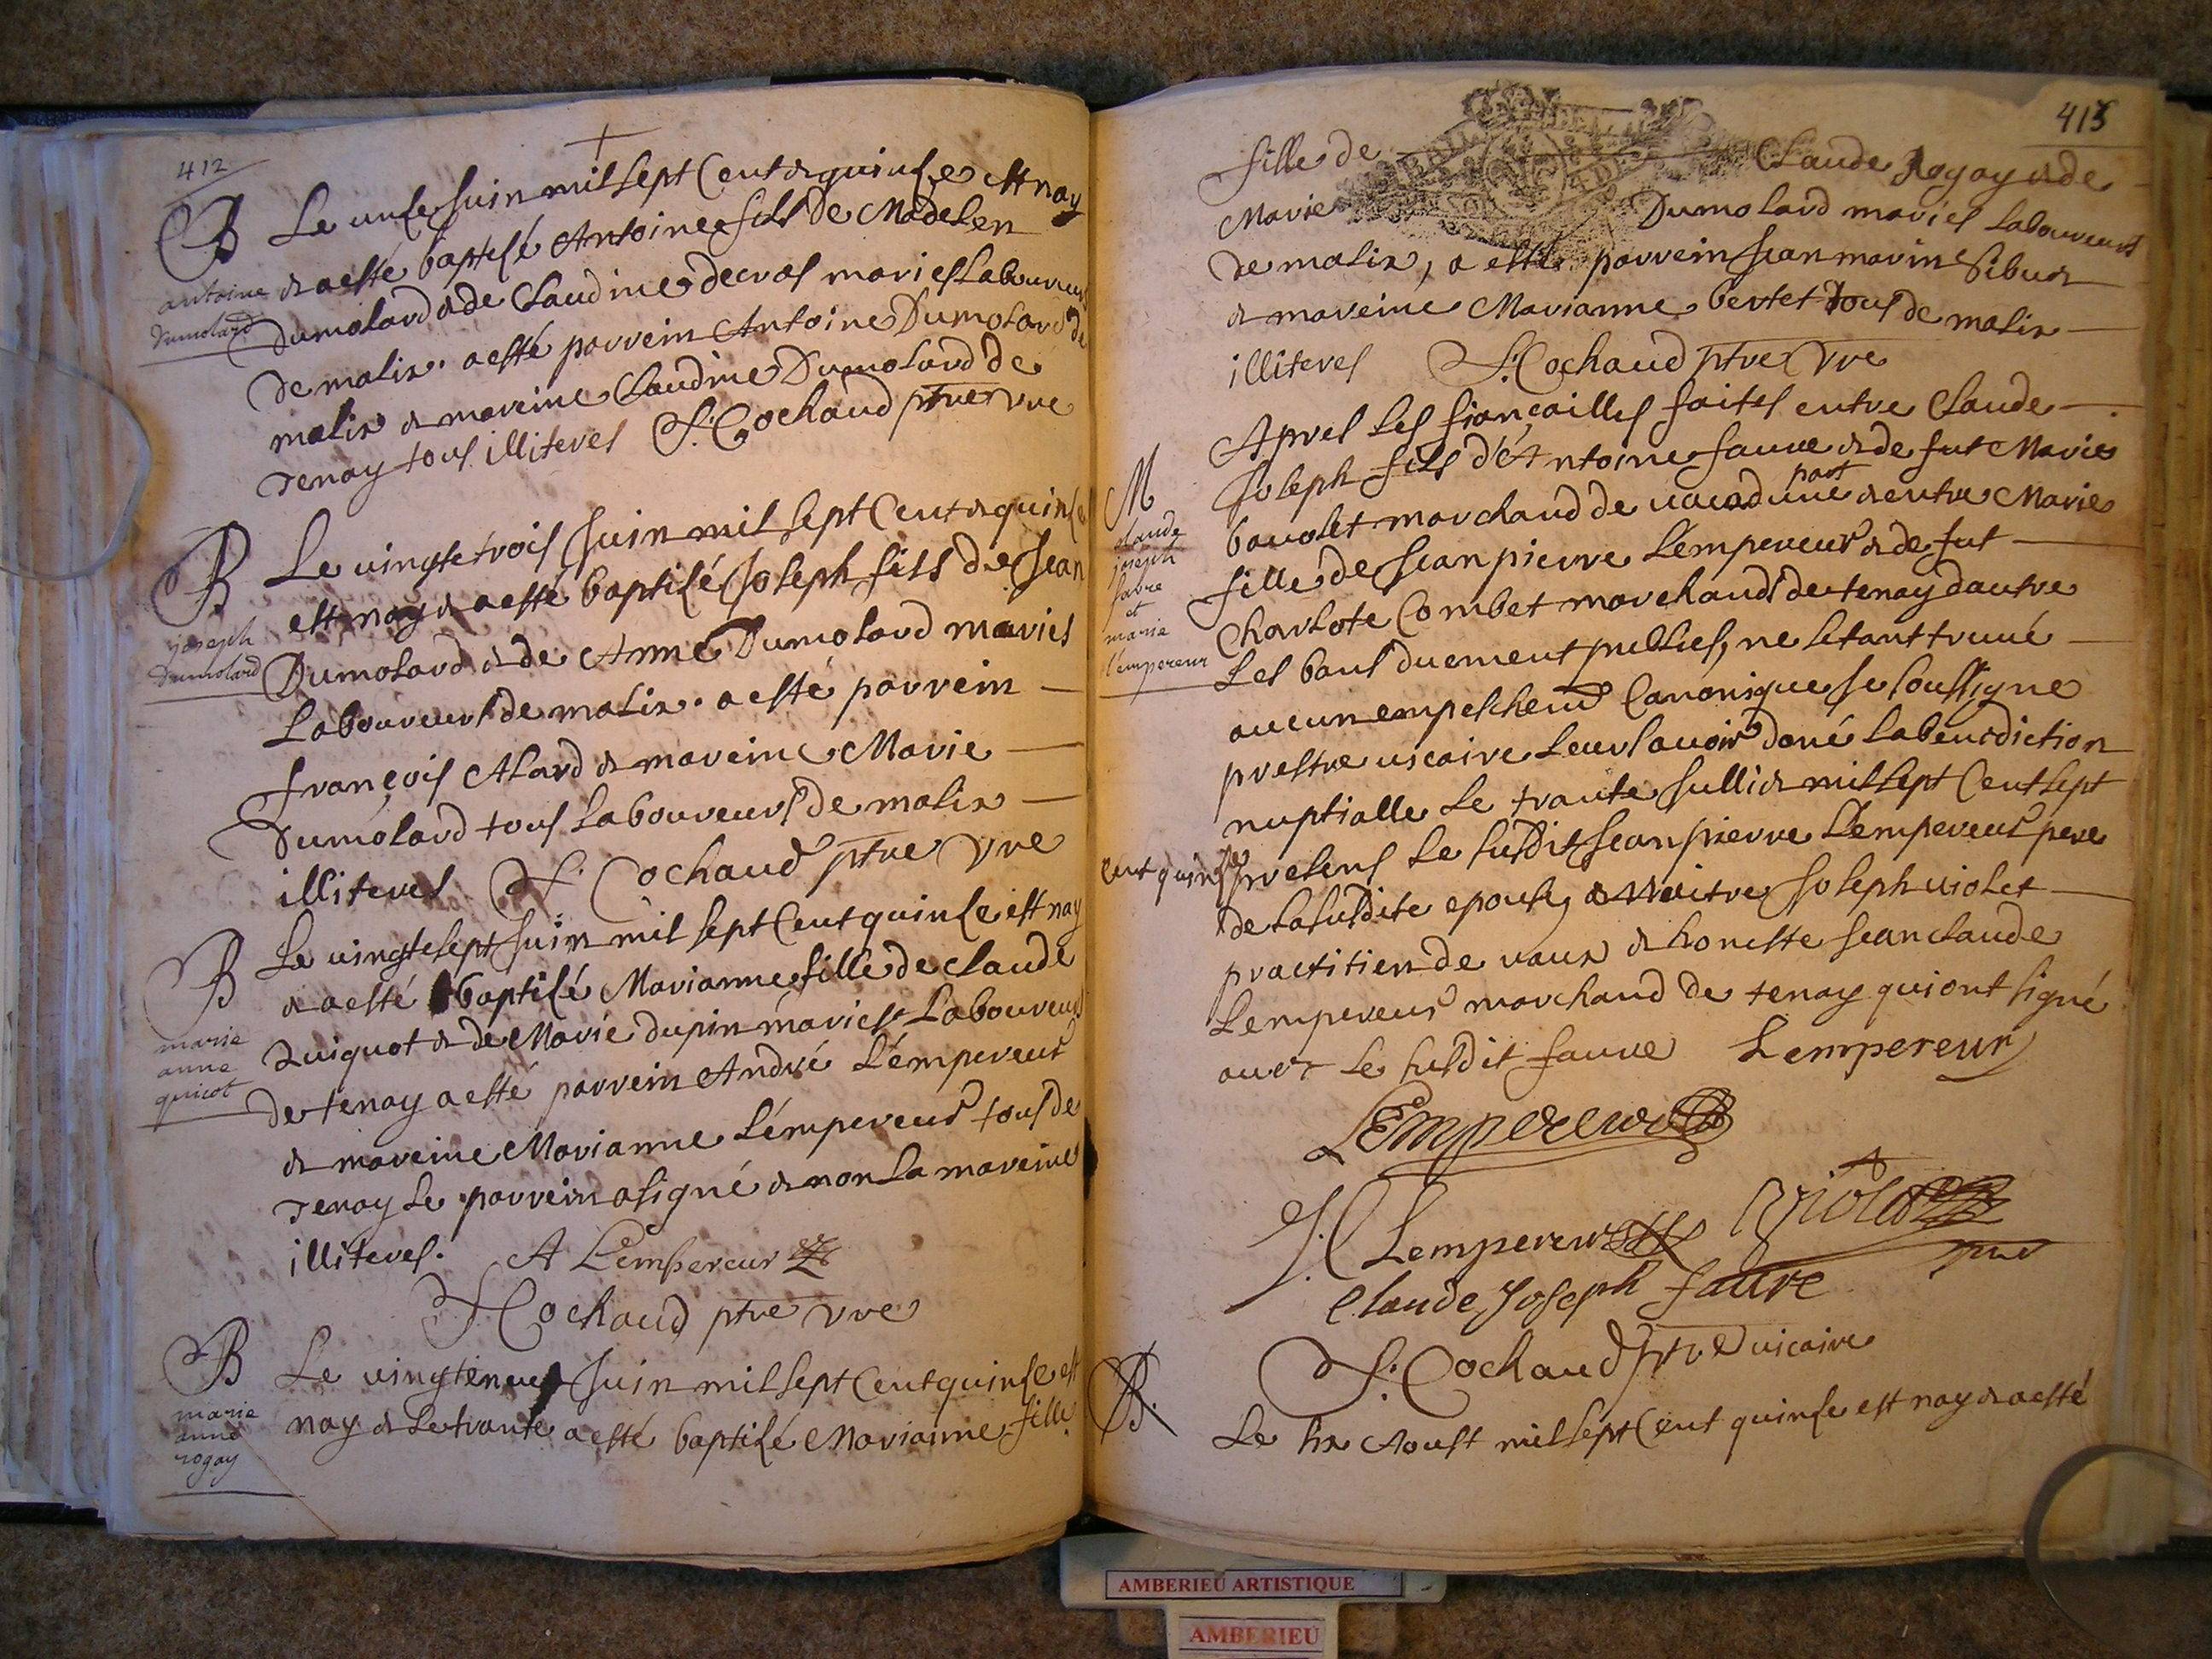 412
B Le unse Juin mil sept Cent & quinse est nay
antoine
dumolard
& a esté baptisé Antoine fils de Madelen
Dumolard & de Claudine decros mariés Laboureurs
de malix. a esté parrein Antoine Dumolard de
malix & mareine Claudine Dumolard de
Tenay tous illiterés J. Cochaud ptre vre
B Le vingtetrois Juin mil sept Cent & quinse
joseph
dumolard
est nay & a esté baptisé Joseph fils de Jean
Dumolard & de Anne Dumolard mariés
Laboureurs de malix. a esté parrein
françois Alard & mareine Marie
Dumolard tous Laboureurs de malix
illiterés J. Cochaud ptre vre
B Le vingtesept Juin mil sept Cent quinse est nay
marie
anne
quicot
& a esté baptisé Marianne fille de claude
Quiquot & de Marie dupin mariés Laboureurs
de tenay a esté parrein André L'empereur
& mareine Marianne L'empereur tous de
Tenay Le parrein a signé & non La mareine
illiterés. A Lempereur
J Cochaud ptre vre
B Le vingteneuf Juin mil sept Cent quinse est
marie
anne
rogay
nay & Le trante a esté baptisé Marianne fille
413
fille de Claude Rogay & de
Marie Dumolard mariés Laboureurs
de malix, a esté parrein Jean marin Sibu&
& mareine Marianne bertet tous de malix
illiterés J. Cochaud ptre vre
M
claude
joseph
favre
et
marie
l'empereur
Apres Les fiançailles faites entre Claude
Joseph fils d'Antoine faure & de fut Marie
bavolet marchand de vaux d'une part & entre Marie
fille de Jean pierre L'empereur & de fut
Charlote Combet marchands de tenay dautre
Les bans duement publiés, ne s'etant truvé
aucun empeschemt Canonique Je soussigné
prestre vicaire Leurs avoir doné La benediction
nuptialle Le trante Jullie& mil sept Cent sept
cent quinse presens Le susdit Jean pierre L'empereur pere
de La susdite epouse, & Maitre Joseph violet
practitien de vaux & honeste Jean claude
Lempereur marchand de tenay qui ont signé
avec Le susdit faure Lempereur
LEmpereur
J. C Lempereur Violet
Claude Joseph faure
J. Cochaud ptre vicaire
B. Le six Aoust mil sept Cent quinse est nay & a esté
AMBERIEU ARTISTIQUE
AMBERIEU